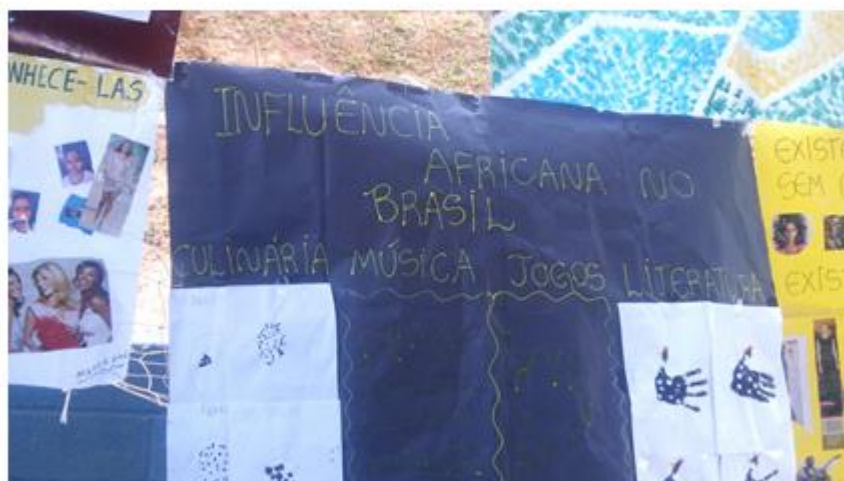 NHECE-LAS
INFLUÊNCIA
AFRICANA NO
BRASIL
CULINÁRIA MÚSICA JOGOS LITERATURA
EXISTE
SEM
EXIST